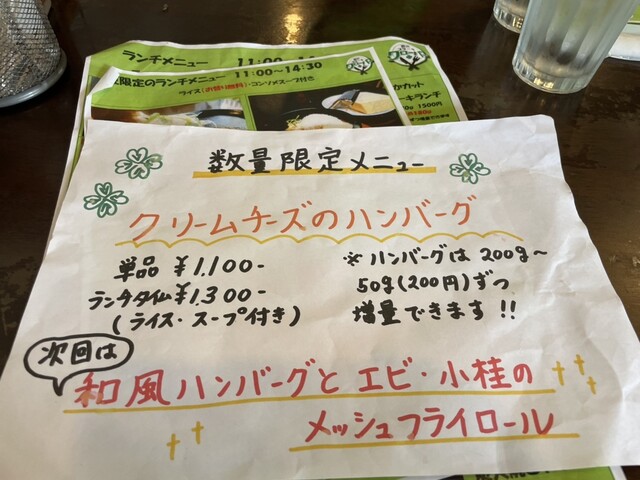 ランチメニュー 11:00
限定のランチメニュー 11:00～14:30
ライス(お替り無料)・コンソメスープ付き
カット
キランチ
1500円
数量限定メニュー
クリームチーズのハンバーグ
単品 ¥1,100-
ランチタイム ¥1,300-
(ライス・スープ付き)
※ハンバーグは200g～
50g(200円)ずつ
増量できます!!
次回は
和風ハンバーグとエビ・小桂の
メッシュフライロール